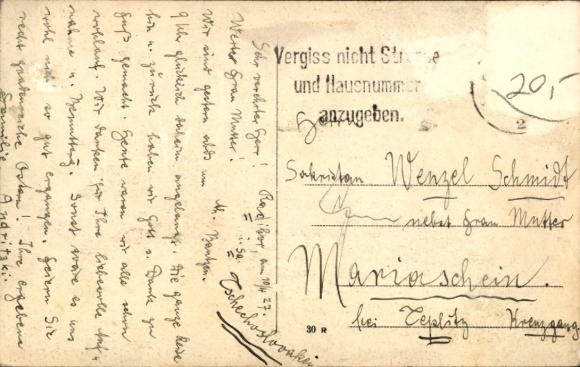 Radibor, am 19/4 27.
i. Sa.
Sehr verehrter Herr!
Werter Frau Mutter!
Wir sind gestern abds um
9 Uhr glücklich daheim angelangt. Die ganze Reise
hin u. zurück haben wir Gott s. Dank zu
Fuß gemacht. Heute waren wir alle schon
wohlauf. Wir danken für Ihre liebevolle Auf-
nahme u. Bewirttung. Sonst wäre es uns
wohl nicht so gut ergangen. Feiern Sie
recht gnadenreiche Ostern! Ihre ergebene
Familie Andritzki
M. Bautzen.
Tschechoslovakei
Vergiss nicht Strasse
und Hausnummer
anzugeben.
20,-
2
Herrn
Sakristan Wenzel Schmidt
nebst Frau Mutter
Mariaschein.
bei Teplitz Kreuzgang.
30 R